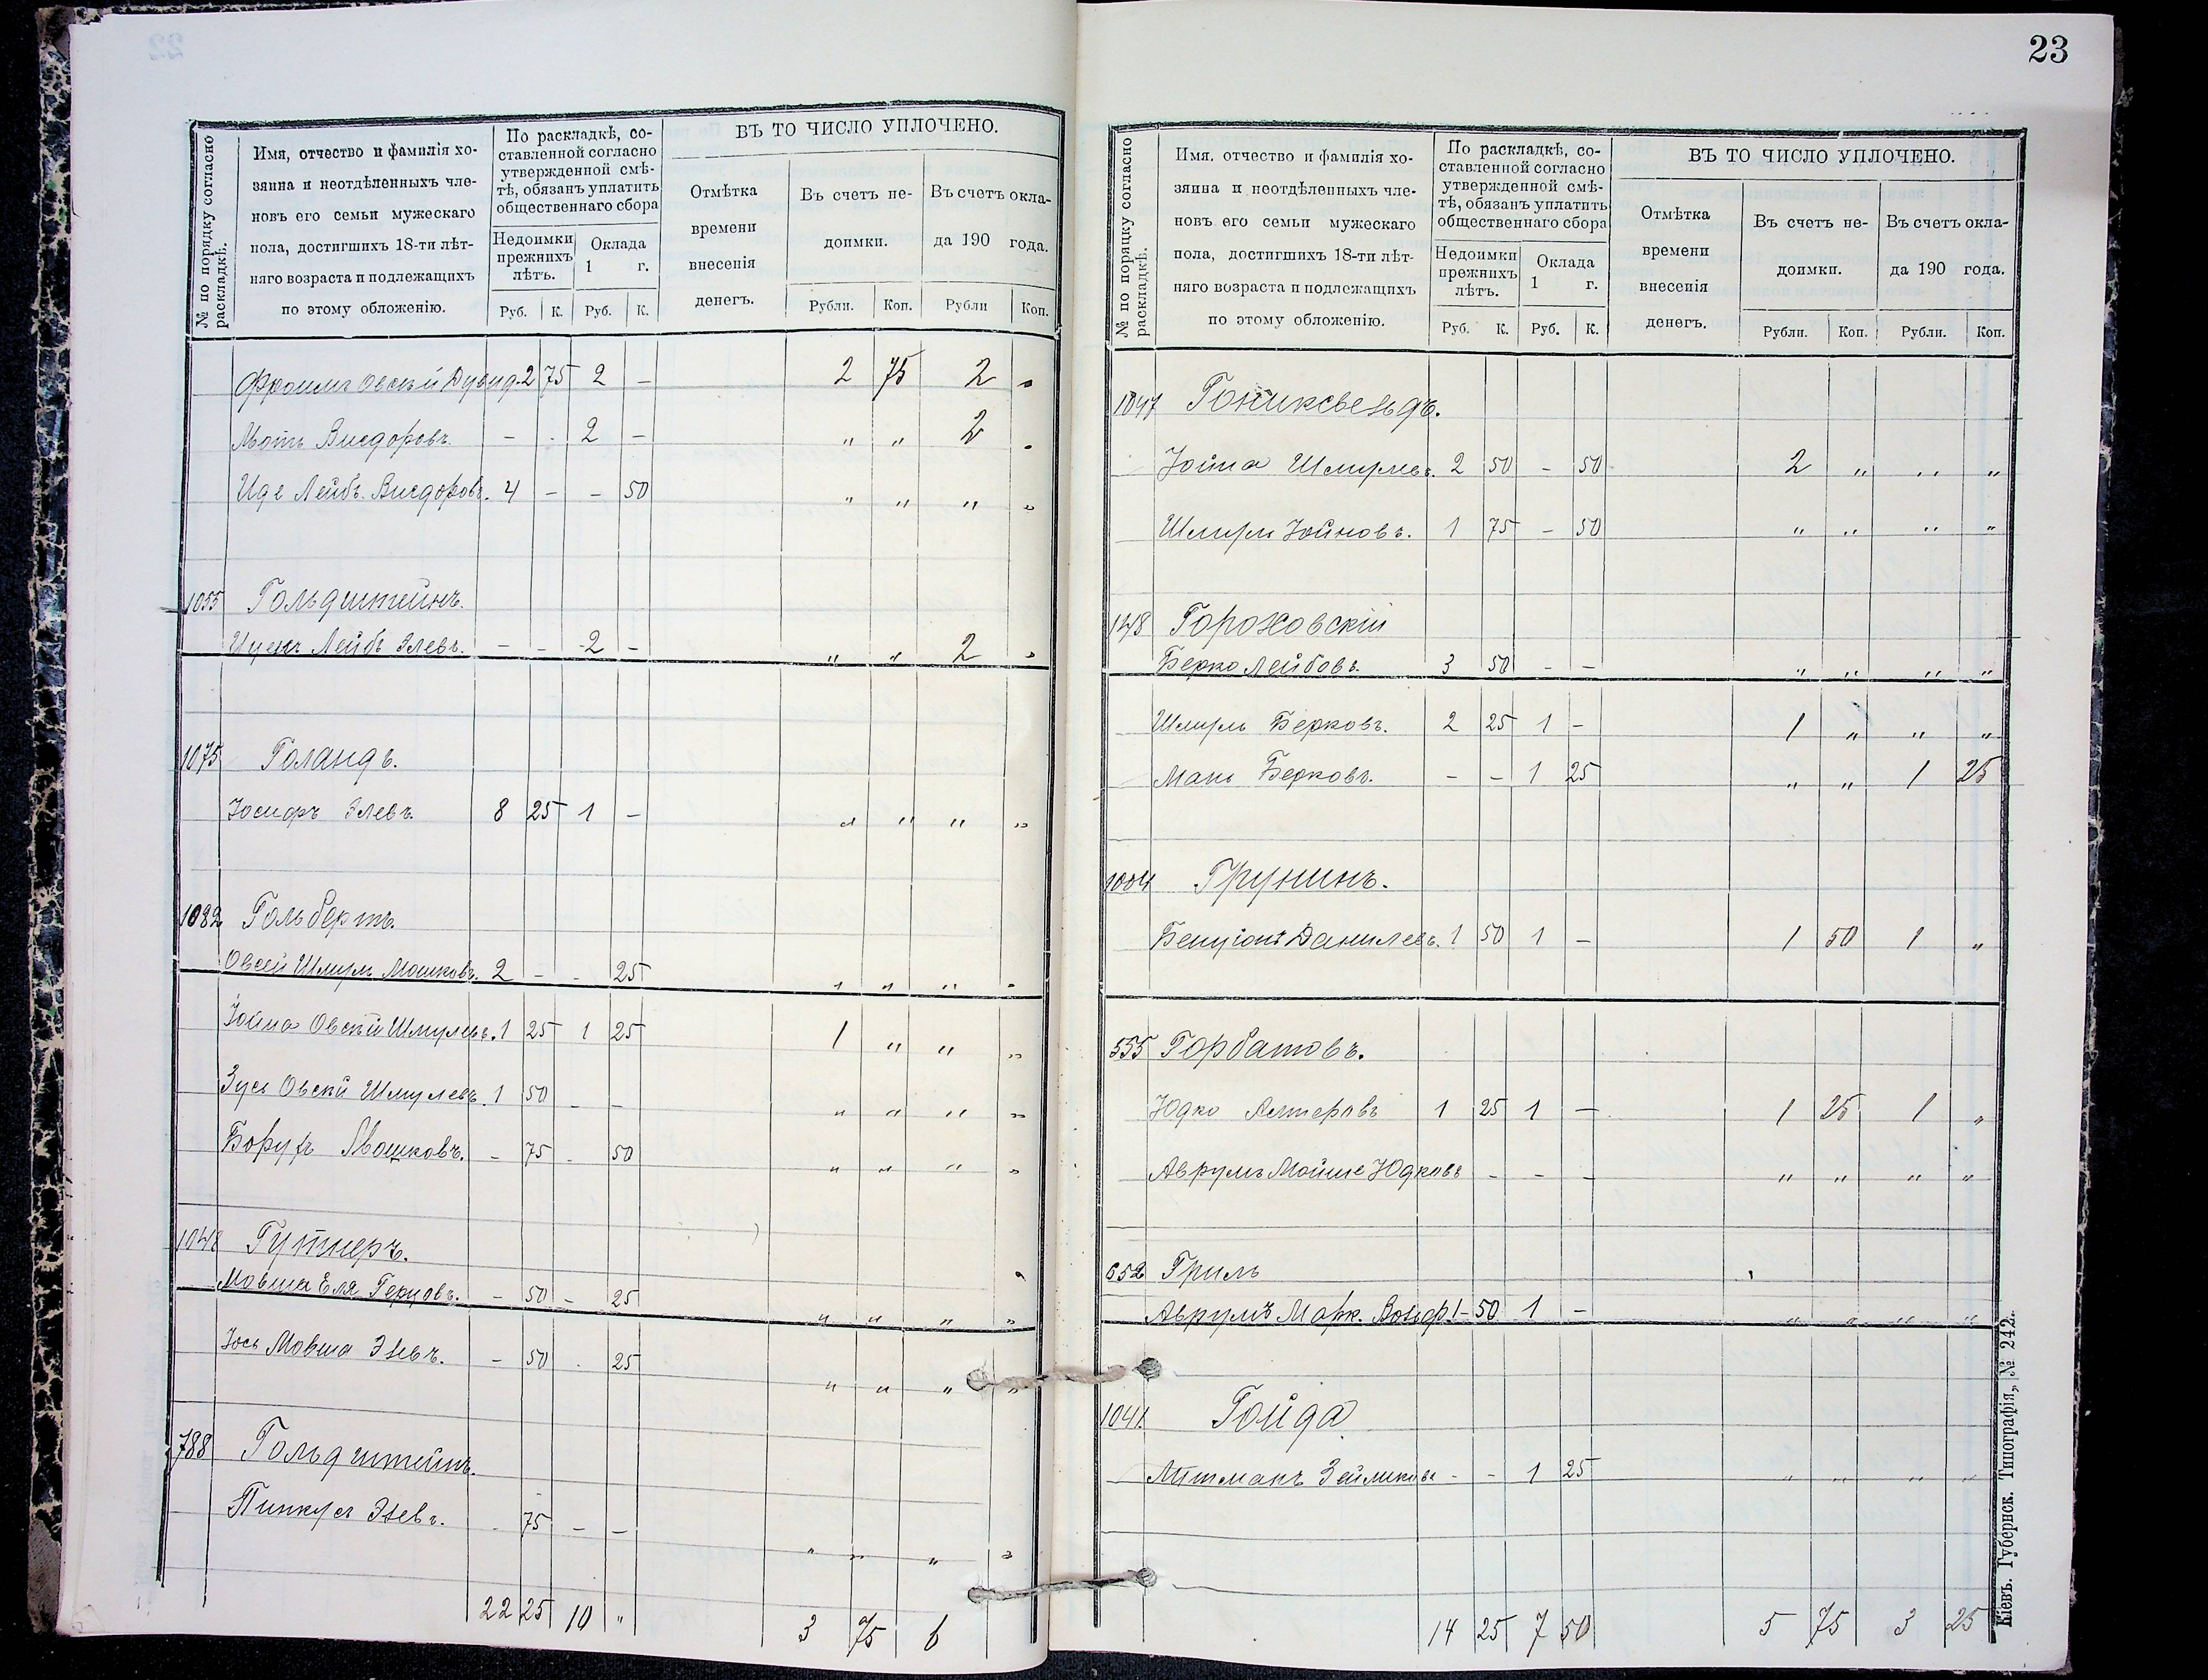 № по порядку согласно раскладкѣ.
Имя, отчество и фамилія хо-
зяина и неотдѣленныхъ чле-
новъ его семьи мужескаго
пола, достигшихъ 18-ти лѣт-
няго возраста и подлежащихъ
по этому обложенію.
По раскладкѣ, со-
ставленной согласно
утвержденной смѣ-
тѣ, обязанъ уплатить
общественнаго сбора
Недоимки
прежнихъ
лѣтъ.
Оклада
1 г.
Руб. К. Руб. К.
ВЪ ТО ЧИСЛО УПЛОЧЕНО.
Отмѣтка
времени
внесенія
денегъ.
Въ счетъ не-
доимки.
Въ счетъ окла-
да 190 года.
Рубли. Коп. Рубли Коп.
Фроимъ Овсѣй Дувид. 2 75 2 – 2 75 2 "
Мотъ Вигдоровъ. – - 2 – " " 2 "
Иде Лейбъ Вигдоровъ. 4 – – 50 " " " "
1055 Гольдштейнъ.
Ицекъ Лейбъ Элевъ. – – 2 – " " 2 "
1075 Голандъ.
Іосифъ Элевъ. 8 25 1 – " " " "
1082 Гольбертъ.
Овсей Шмуль Мошковъ. 2 – - 25 " " " "
Іойна Овсѣй Шмулевъ. 1 25 1 25 1 " " "
Зусь Овсѣй Шмулевъ. 1 50 – – " " " "
Борухъ Мошковъ. – 75 - 50 " " " "
1048 Гутнеръ.
Мовша Еля Герцовъ. – 50 – 25 " " " "
Іось Мовша Элевъ. – 50 - 25 " " " "
788 Гольдштейнъ.
Пинкусъ Элевъ. - 75 – – " " " "
22 25 10 " 3 75 6
23
№ по порядку согласно раскладкѣ.
Имя. отчество и фамилія хо-
зяина и неотдѣленныхъ чле-
новъ его семьи мужескаго
пола, достигшихъ 18-ти лѣт-
няго возраста и подлежащихъ
по этому обложенію.
По раскладкѣ, со-
ставленной согласно
утвержденной смѣ-
тѣ, обязанъ уплатить
общественнаго сбора
Недоимки
прежнихъ
лѣтъ.
Оклада
1 г.
Руб. К. Руб. К.
ВЪ ТО ЧИСЛО УПЛОЧЕНО.
Отмѣтка
времени
внесенія
денегъ.
Въ счетъ не-
доимки.
Въ счетъ окла-
да 190 года.
Рубли. Коп. Рубли. Коп.
1047 Гониксвельдъ.
Іойна Шмулев. 2 50 – 50 2 " " "
Шмуль Іойновъ. 1 75 – 50 " " " "
148 Гороховскій
Берко Лейбовъ. 3 50 – – " " " "
Шмуль Берковъ. 2 25 1 – 1 " " "
Мани Берковъ. – – 1 25 " " 1 25
1004 Грунинъ.
Бенціонъ Данилевъ. 1 50 1 – 1 50 1 "
555 Горбатовъ.
Юдко Алтеровъ 1 25 1 – 1 25 1 "
Аврумъ Мойше Юдковъ – – – " " " "
652 Гриль
Аврумъ Марк. Вольф. 1 – 50 1 – " " " "
1041. Гойда
Зейликовъ – – 1 25 " " " "
14 25 7 50 5 75 3 25
Кіевъ. Губернск. Типографія, № 242.